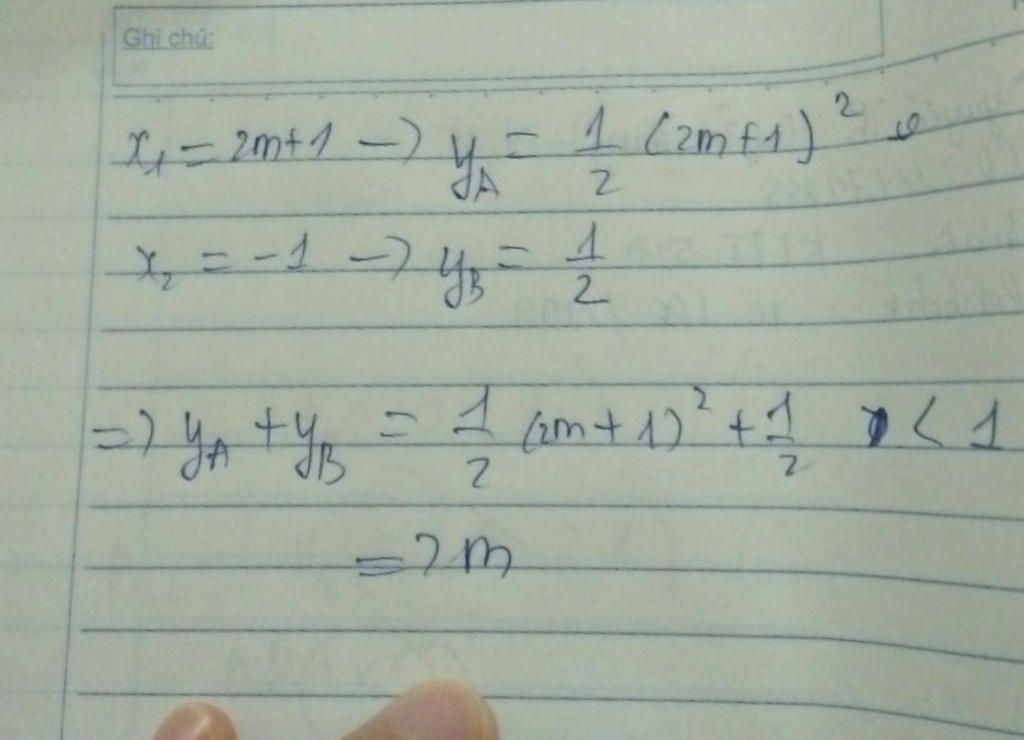 Ghi chú:
x₁ = 2m+1 → y_A = 1/2 (2m+1)²
x₂ = -1 → y_B = 1/2
=> y_A + y_B = 1/2 (2m+1)² + 1/2 < 1
=> m